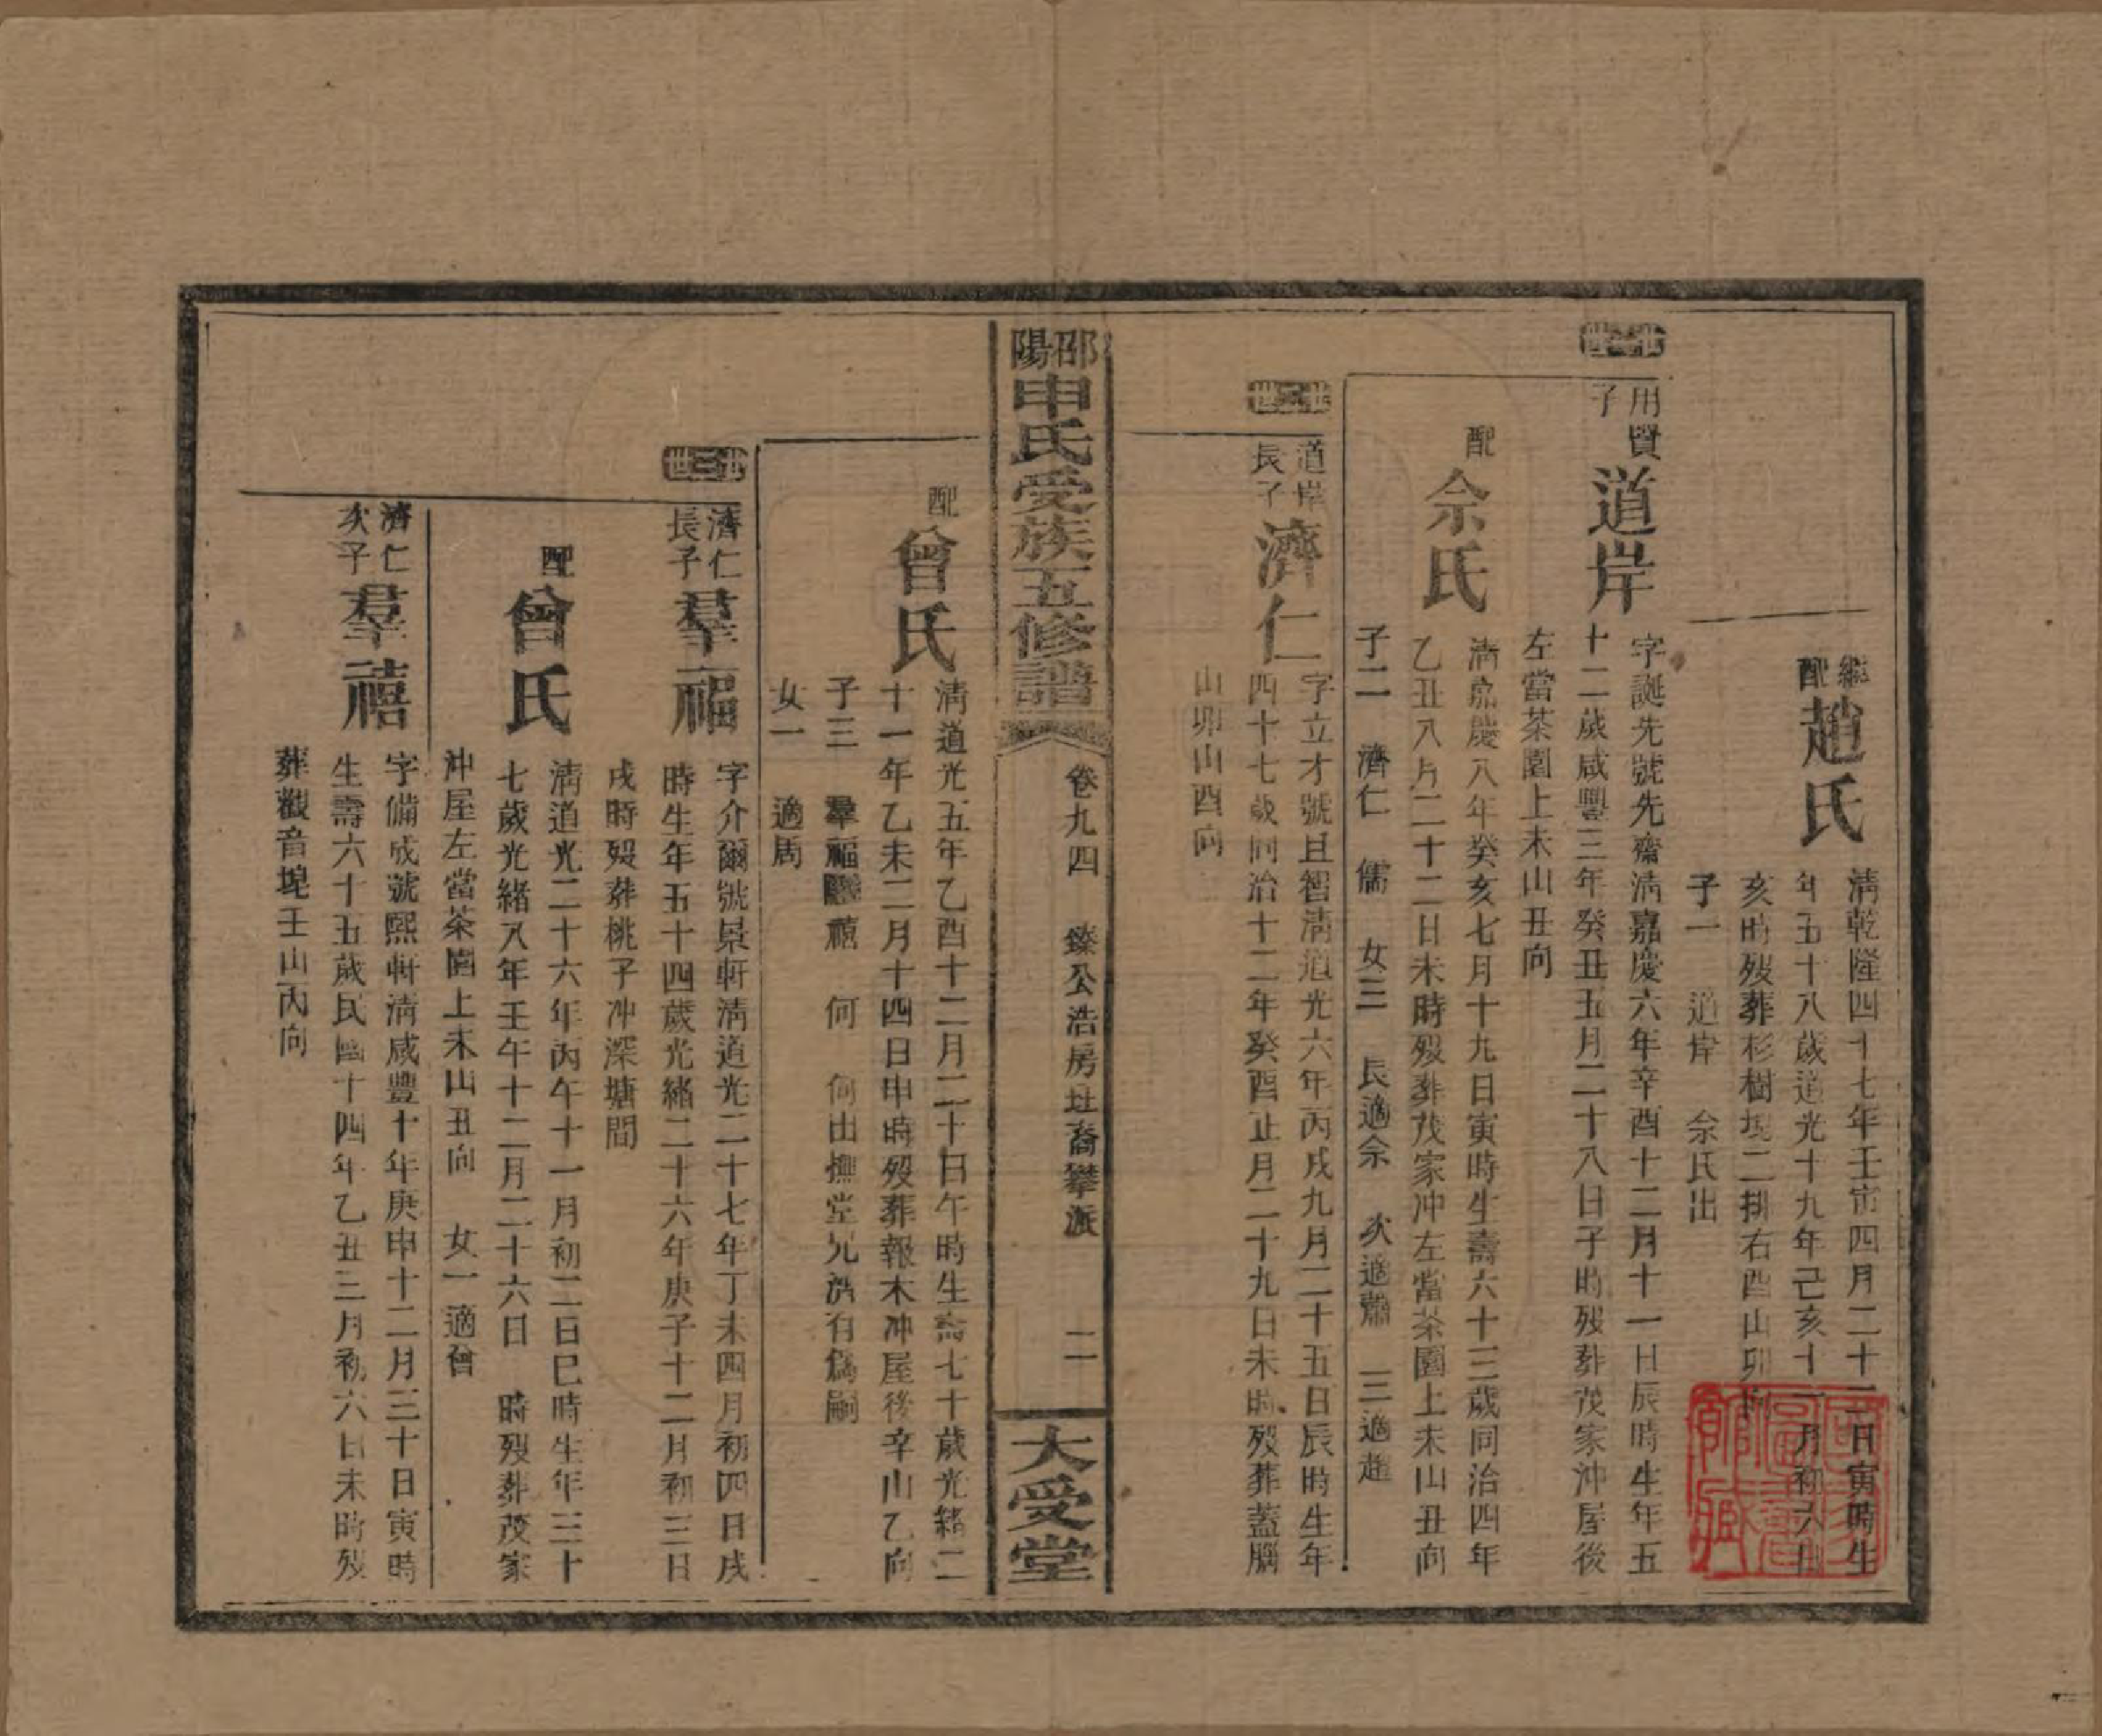 繼配趙氏
清乾隆四十七年壬寅四月二十二日寅時生
年五十八歲道光十九年己亥十一月初六日
亥時歿葬杉樹塊二排右酉山卯向
子一　道岸　佘氏出
世
用賢子道岸
字誕先號先齋清嘉慶六年辛酉十二月十一日辰時生年五
十二歲咸豐三年癸丑五月二十八日子時歿葬茂家沖屋後
左當茶園上未山丑向
配佘氏
清嘉慶八年癸亥七月十九日寅時生壽六十三歲同治四年
乙丑八月二十二日未時歿葬茂家冲左當茶園上未山丑向
子二　濟仁　儒　女三　長適佘　次適蕭　三適趙
世
道岸長子濟仁
字立才號且智清道光六年丙戌九月二十五日辰時生年
四十七歲同治十二年癸酉正月二十九日未時歿葬蓋腦
山卯山酉向
邵陽申氏受族五修譜
卷九四　臻公浩房址裔攀派　二
大受堂
配曾氏
清道光五年乙酉十二月二十日午時生壽七十歲光緒二
十一年乙未二月十四日申時歿葬報木冲屋後辛山乙向
子三　羣福　禧　何　何出撫堂兄濟有為嗣
女一　適周
世
濟仁長子羣福
字介爾號景軒清道光二十七年丁未四月初四日戌
時生年五十四歲光緒二十六年庚子十二月初三日
戌時歿葬桃子冲深塘間
配曾氏
清道光二十六年丙午十一月初二日巳時生年三十
七歲光緒八年壬午十二月二十六日　時歿葬茂家
冲屋左當茶園上未山丑向　女一適曾
濟仁次子羣禧
字備成號熙軒清咸豐十年庚申十二月三十日寅時
生壽六十五歲民國十四年乙丑三月初六日未時歿
葬觀音塊壬山丙向